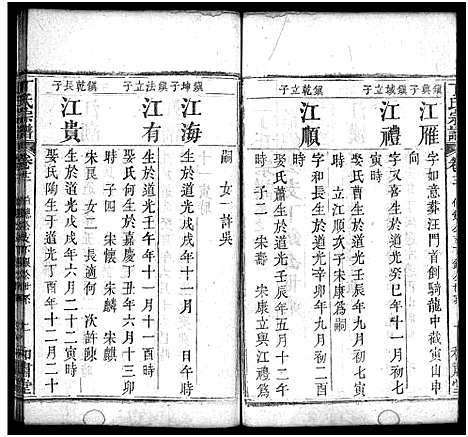 丁氏宗譜
卷
鎮與子
江雁
字如意葬汪門首倒騎龍中截寅山申
向
鎮域立子
江禮
生於道光癸巳年十一月初二
寅時
娶氏生於道光壬辰年九月初七戌
時
立江順次子宋康爲嗣
鎮乾立子
江順
字和長生於道光壬辰年九月初二酉
時
娶氏生於道光壬辰年五月十二
時
子二 宋壽 宋康立與江禮爲
嗣
女一許吳
鎮坤子
江海
生於道光戊戌年十一月 日午時
鎮法立子
江有
生於道光壬午年十一月十一
時
娶氏何生於嘉慶丁丑年六月十三卯
時
子四 宋懷 宋麟 宋麒
宋艮
女三長適何 次許陳
鎮乾長子
江貴
生於道光戊戌年六月二十二寅時
娶氏陶生於道光丁酉年十一月二十
丁氏宗譜
卷
和肅堂